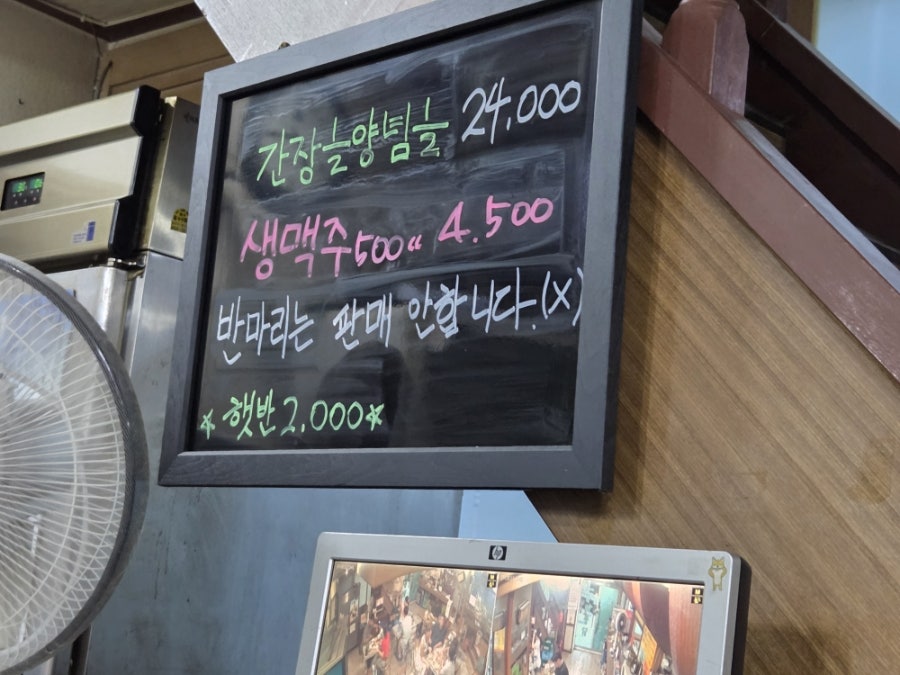 간장늘양념늘 24,000
생맥주 500cc 4.500
반마리는 판매 안합니다.(X)
☆햇반 2,000☆
hp